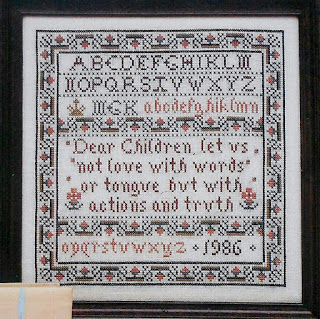 ABCDEFGHIKLM
NOPQRSTVWXYZ
MGK abcdefghiklmn
"Dear Children, let us
"not love with words"
or tongue, but with
actions and truth
opqrstvwxyz · 1986 ·